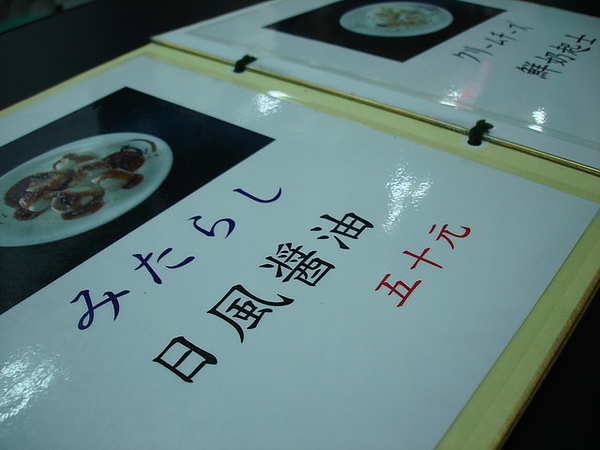 みたらし
日風醬油
五十元
クリームチーズ
鮮奶起士